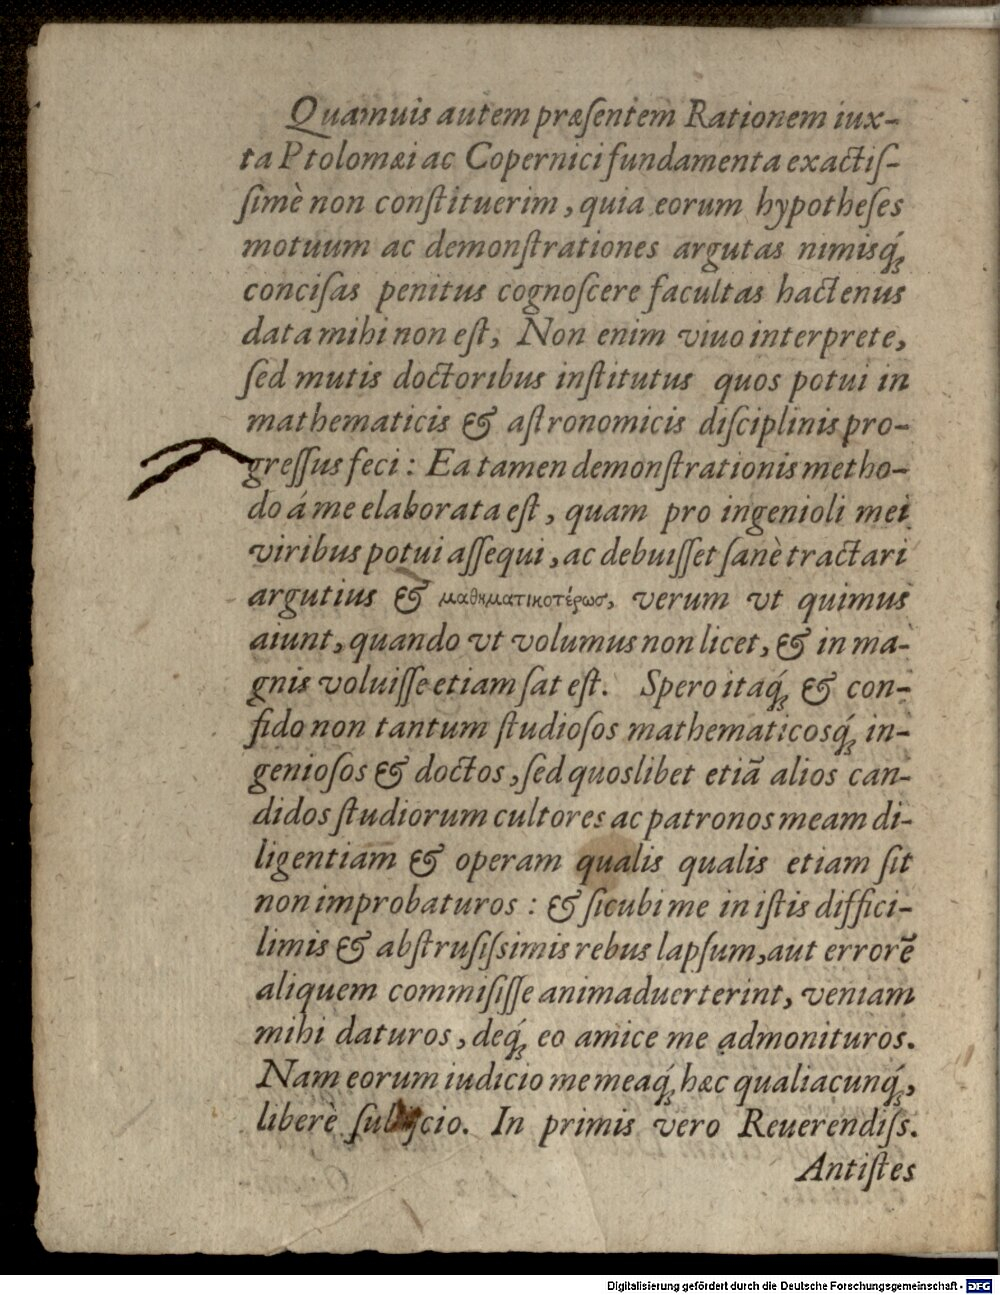 Quamuis autem præſentem Rationem iux-
ta Ptolomæi ac Copernici fundamenta exactiſ-
ſimè non conſtituerim, quia eorum hypotheſes
motuum ac demonſtrationes argutas nimisq́;
conciſas penitus cognoſcere facultas hactenus
data mihi non eſt, Non enim viuo interprete,
ſed mutis doctoribus inſtitutus quos potui in
mathematicis & aſtronomicis diſciplinis pro-
greſſus feci: Ea tamen demonſtrationis metho-
do á me elaborata eſt, quam pro ingenioli mei
viribus potui aſſequi, ac debuiſſet ſanè tractari
argutius & μαθηματικοτέρωσ, verum vt quimus
aiunt, quando vt volumus non licet, & in ma-
gnis voluiſſe etiam ſat eſt. Spero itaq́; & con-
fido non tantum ſtudioſos mathematicosq́; in-
genioſos & doctos, ſed quoslibet etiã alios can-
didos ſtudiorum cultores ac patronos meam di-
ligentiam & operam qualis qualis etiam ſit
non improbaturos: & ſicubi me in iſtis diffici-
limis & abſtruſiſsimis rebus lapſum, aut errorẽ
aliquem commiſiſſe animaduerterint, veniam
mihi daturos, deq́; eo amice me admonituros.
Nam eorum iudicio me meaq́; hæc qualiacunq́;,
liberè ſubijcio. In primis vero Reuerendiſs.
Antiſtes
Digitalisierung gefördert durch die Deutsche Forschungsgemeinschaft - DFG